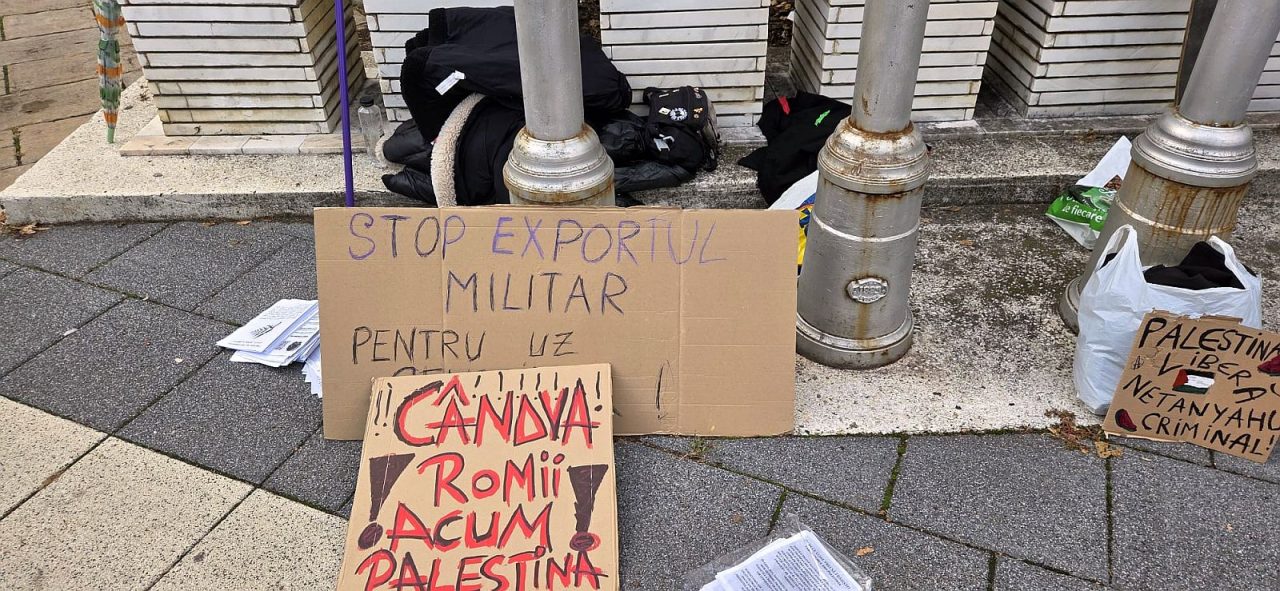 STOP EXPORTUL
MILITAR
PENTRU UZ
!
!! CÂNDVA!!
ROMII
! ACUM !
PALESTINA
PALESTINA
LIBERĂ
NETANYAHU
CRIMINAL!
fiecare